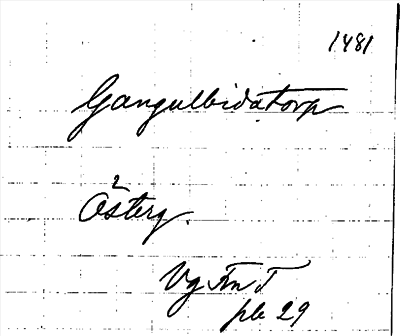 1481
Gangulbidatorp
Österg.
Vg Fn T
pb 29